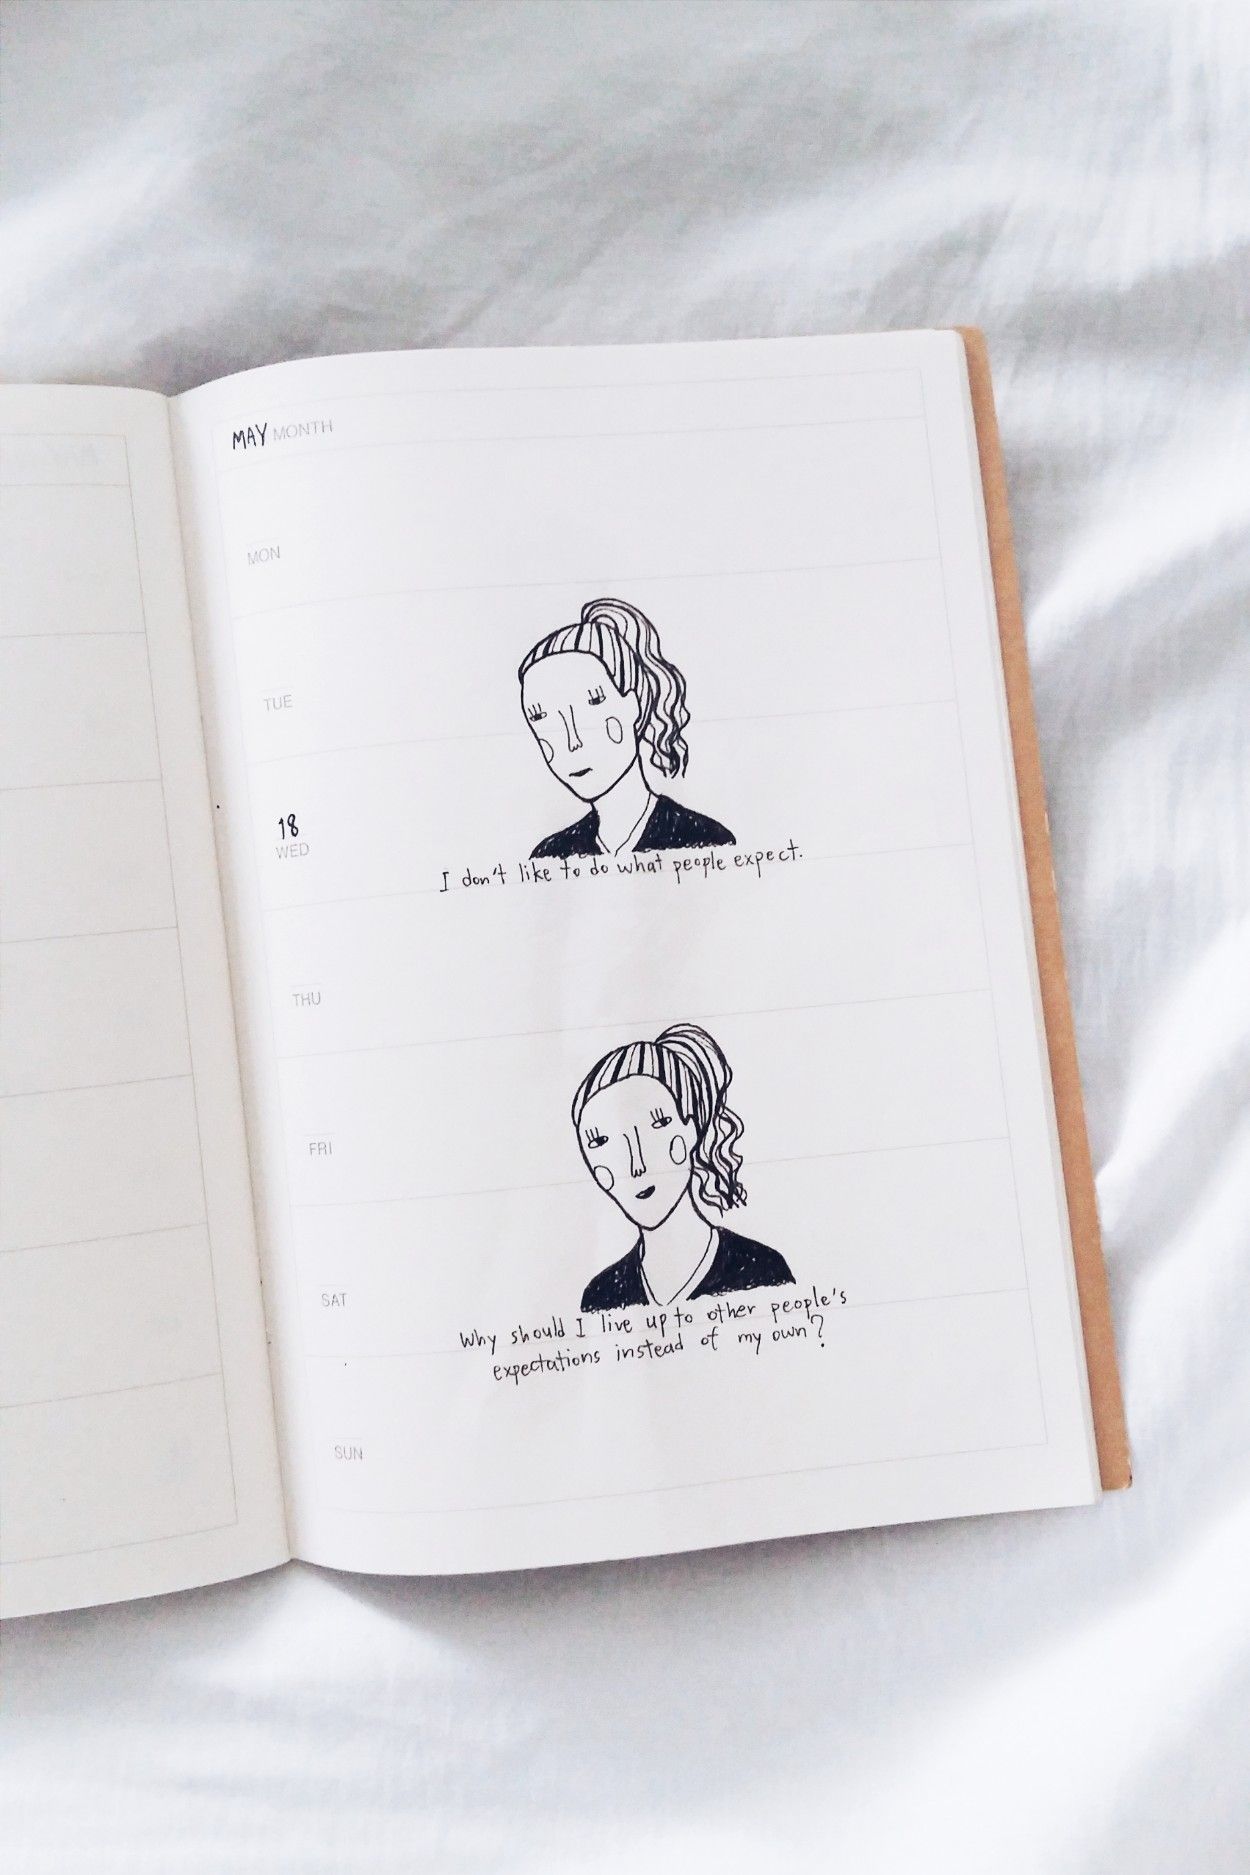 MAY MONTH
MON
TUE
18
WED
I don't like to do what people expect.
THU
FRI
SAT
Why should I live up to other people's
expectations instead of my own?
SUN